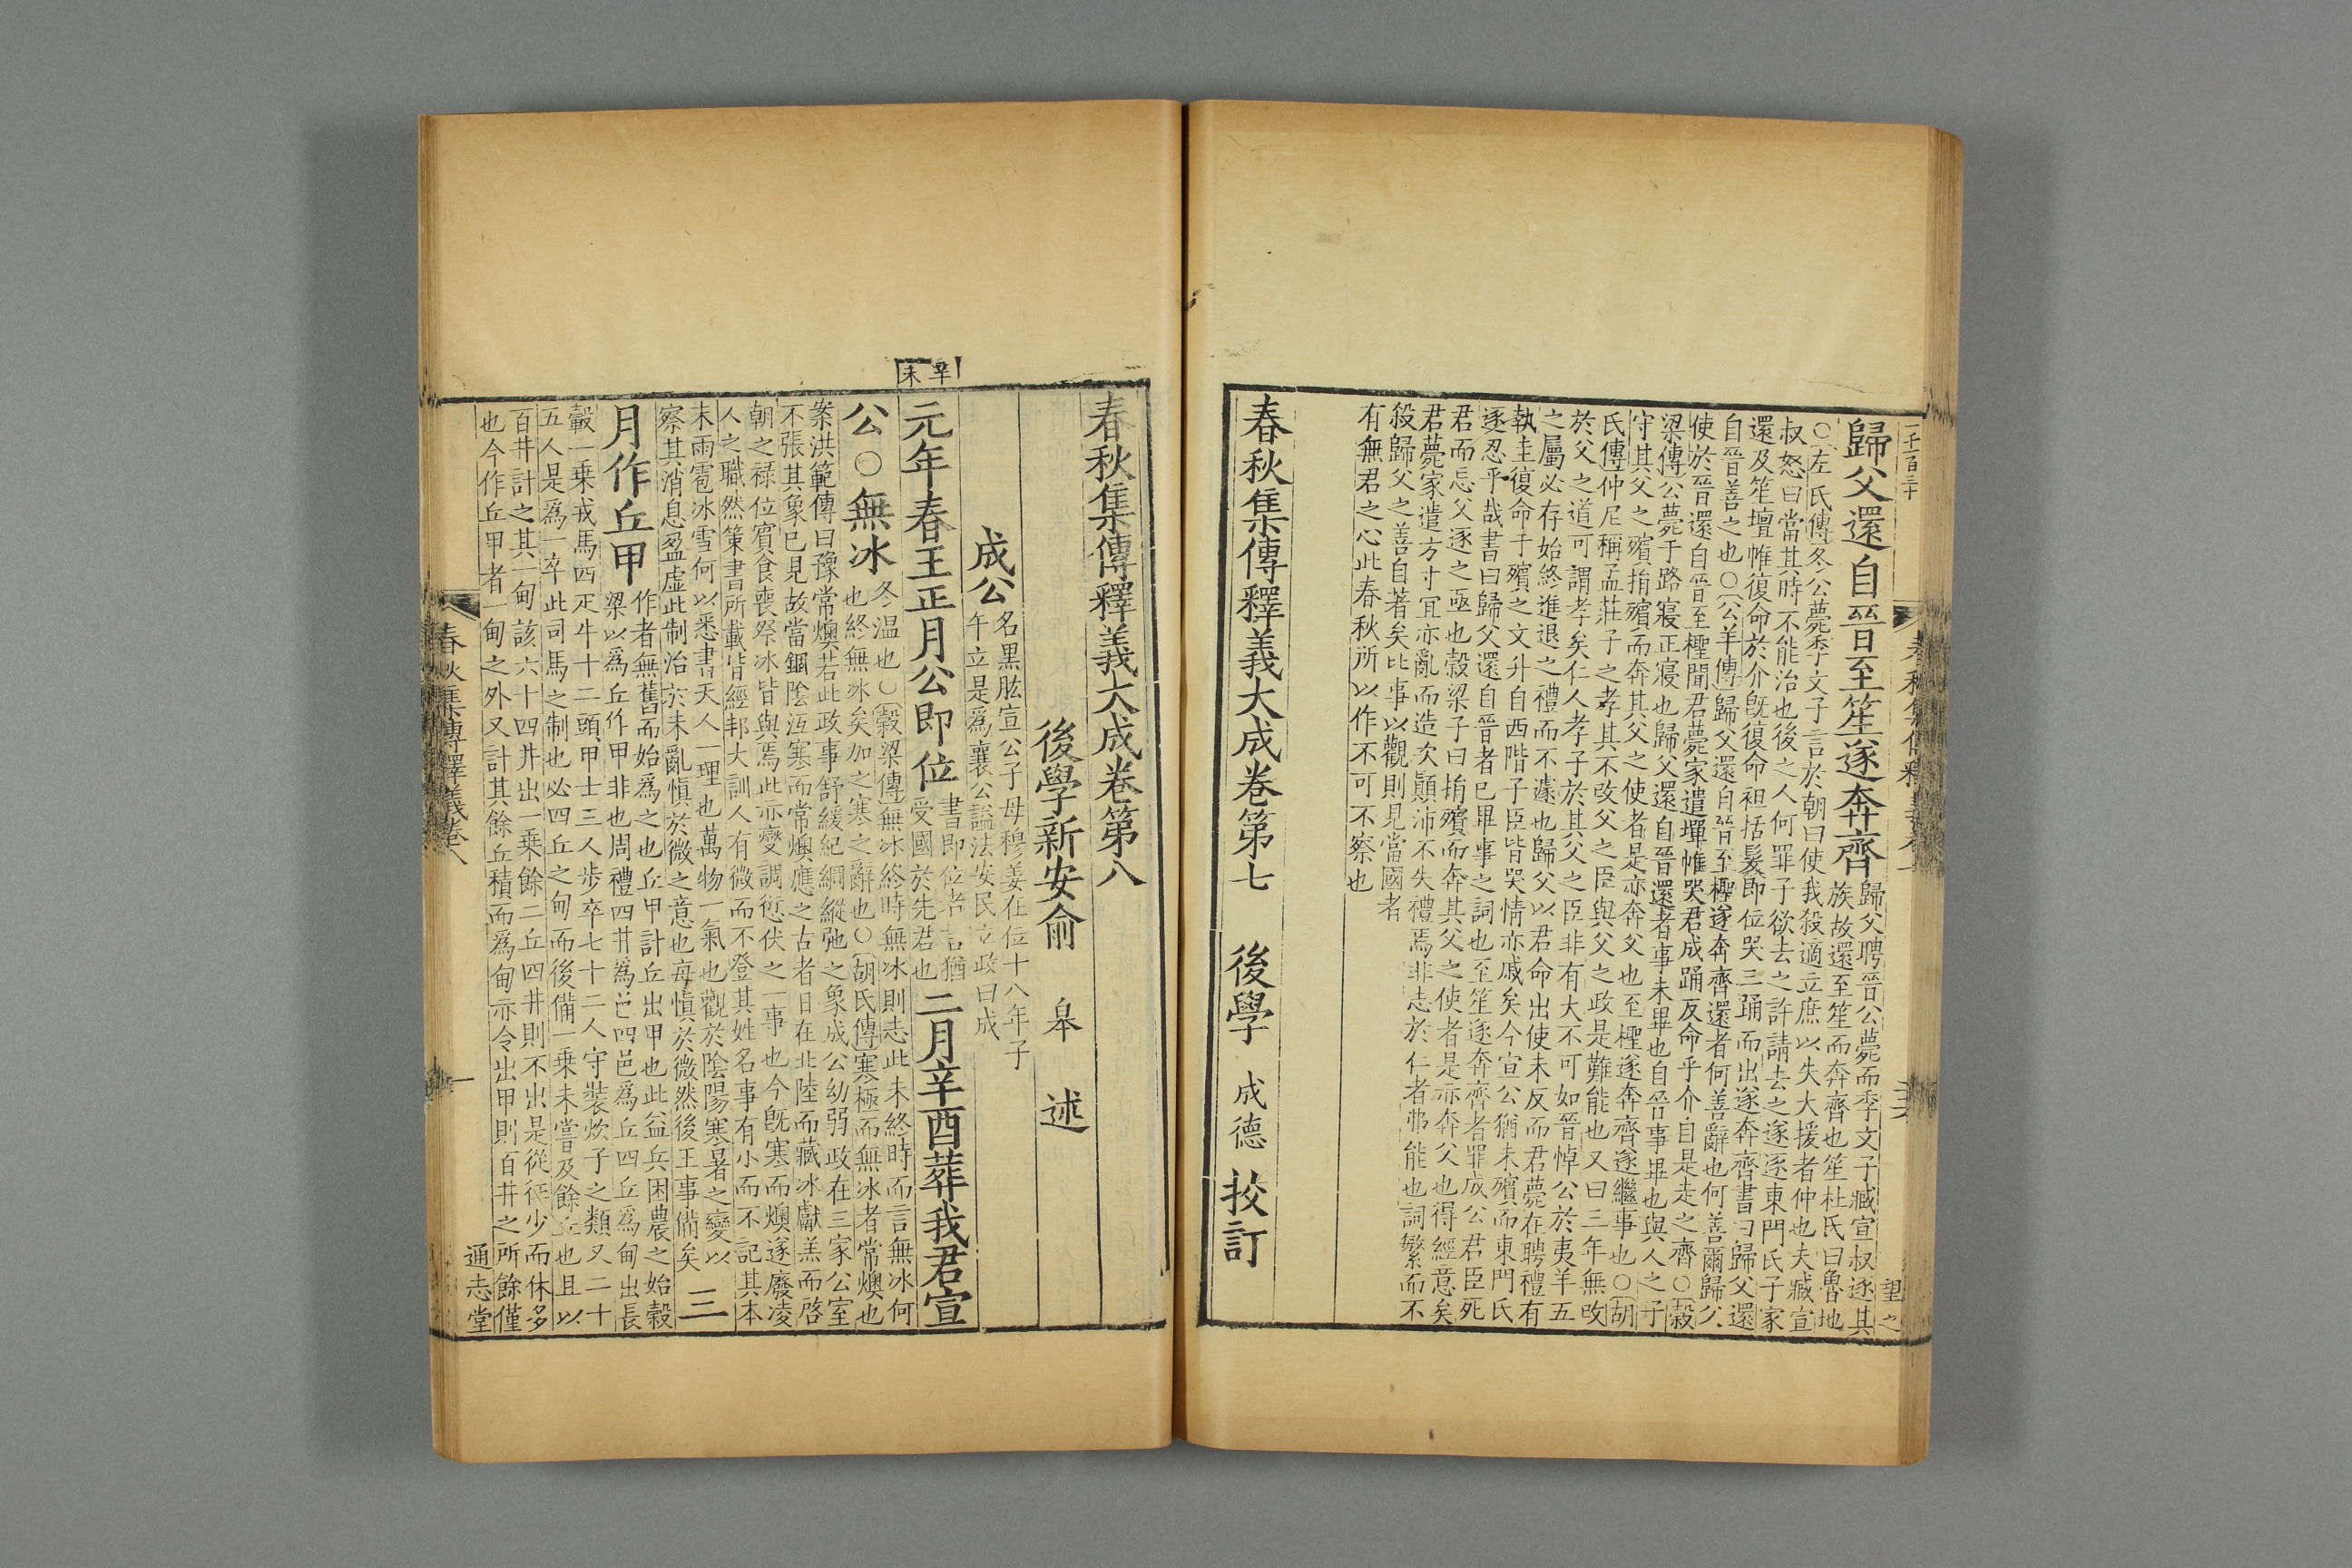 歸父還自晉至笙遂奔齊
歸父聘晉公薨而季文子臧宣叔逐其
族故還至笙而奔齊也笙杜氏曰魯地
○左氏傳冬公薨季文子言於朝曰使我殺適立庶以失大援者仲也夫臧宣
叔怒曰當其時不能治也後之人何罪子欲去之許請去之遂逐東門氏子家
還及笙壇帷復命於介旣復命袒括髮即位哭三踊而出遂奔齊書曰歸父還
自晉善之也○公羊傳歸父還自晉至檉遂奔齊還者何善辭也何善爾歸父
使於晉還自晉至檉聞君薨家遣墠帷哭君成踊反命乎介自是走之齊○穀
梁傳公薨于路寢正寢也歸父還自晉還者事未畢也自晉事畢也與人之子
守其父之殯捐殯而奔其父之使者是亦奔父也至檉遂奔齊遂繼事也○胡
氏傳仲尼稱孟莊子之孝其不改父之臣與父之政是難能也又曰三年無改
於父之道可謂孝矣仁人孝子於其父之臣非有大不可如晉悼公於夷羊五
之屬必存始終進退之禮而不遽也歸父以君命出使未反而君薨在聘禮有
執圭復命于殯之文升自西階子臣皆哭情亦戚矣今宣公猶未殯而東門氏
逐忍乎哉書曰歸父還自晉者已畢事之詞也至笙遂奔齊者罪成公君臣死
君而忘父逐之亟也穀梁子曰捐殯而奔其父之使者是亦奔父也得經意矣
君薨家遣方寸冝亦亂而造次顛沛不失禮焉非志於仁者弗能也詞繁而不
殺歸父之善自著矣比事以觀則見當國者
有無君之心此春秋所以作不可不察也
春秋集傳釋義大成卷第七
後學 成德 挍訂
望之
春秋集傳釋義大成卷第八
後學新安俞 皋 述
成公
名黑肱宣公子母穆姜在位十八年子
午立是爲襄公謚法安民立政曰成
辛未
元年春王正月公即位
書即位者言猶
受國於先君也
二月辛酉葬我君宣
公○無冰
冬溫也○穀梁傳無冰終時無冰則志此未終時而言無冰何
也終無冰矣加之寒之辭也○胡氏傳寒極而無冰者常燠也
案洪範傳曰豫常燠若此政事舒緩紀綱縱弛之象成公幼弱政在三家公室
不張其象已見故當錮陰沍寒而常燠應之古者日在北陸而藏冰獻羔而啓
朝之祿位賓食喪祭冰皆與焉此亦變調愆伏之一事也今旣寒而燠遂廢凌
人之職然策書所載皆經邦大訓人有微而不登其姓名事有小而不記其本
末雨雹冰雪何以悉書天人一理也萬物一氣也觀於陰陽寒暑之變以
察其消息盈虛此制治於未亂愼於微之意也每愼於微然後王事備矣
三
月作丘甲
作者無舊而始爲之也丘甲計丘出甲也此益兵困農之始穀
梁以爲丘作甲非也周禮四井爲邑四邑爲丘四丘爲甸出長
轂一乗戎馬四疋牛十二頭甲士三人步卒七十二人守裝炊子之類又二十
五人是爲一卒此司馬之制也必四丘之甸而後備一乗未嘗及餘丘也且以
百井計之其一甸該六十四井出一乗餘二丘四井則不出是從征少而休多
也今作丘甲者一甸之外又計其餘丘積而爲甸亦令出甲則百井之所餘僅
春秋集傳釋義卷八
一
通志堂